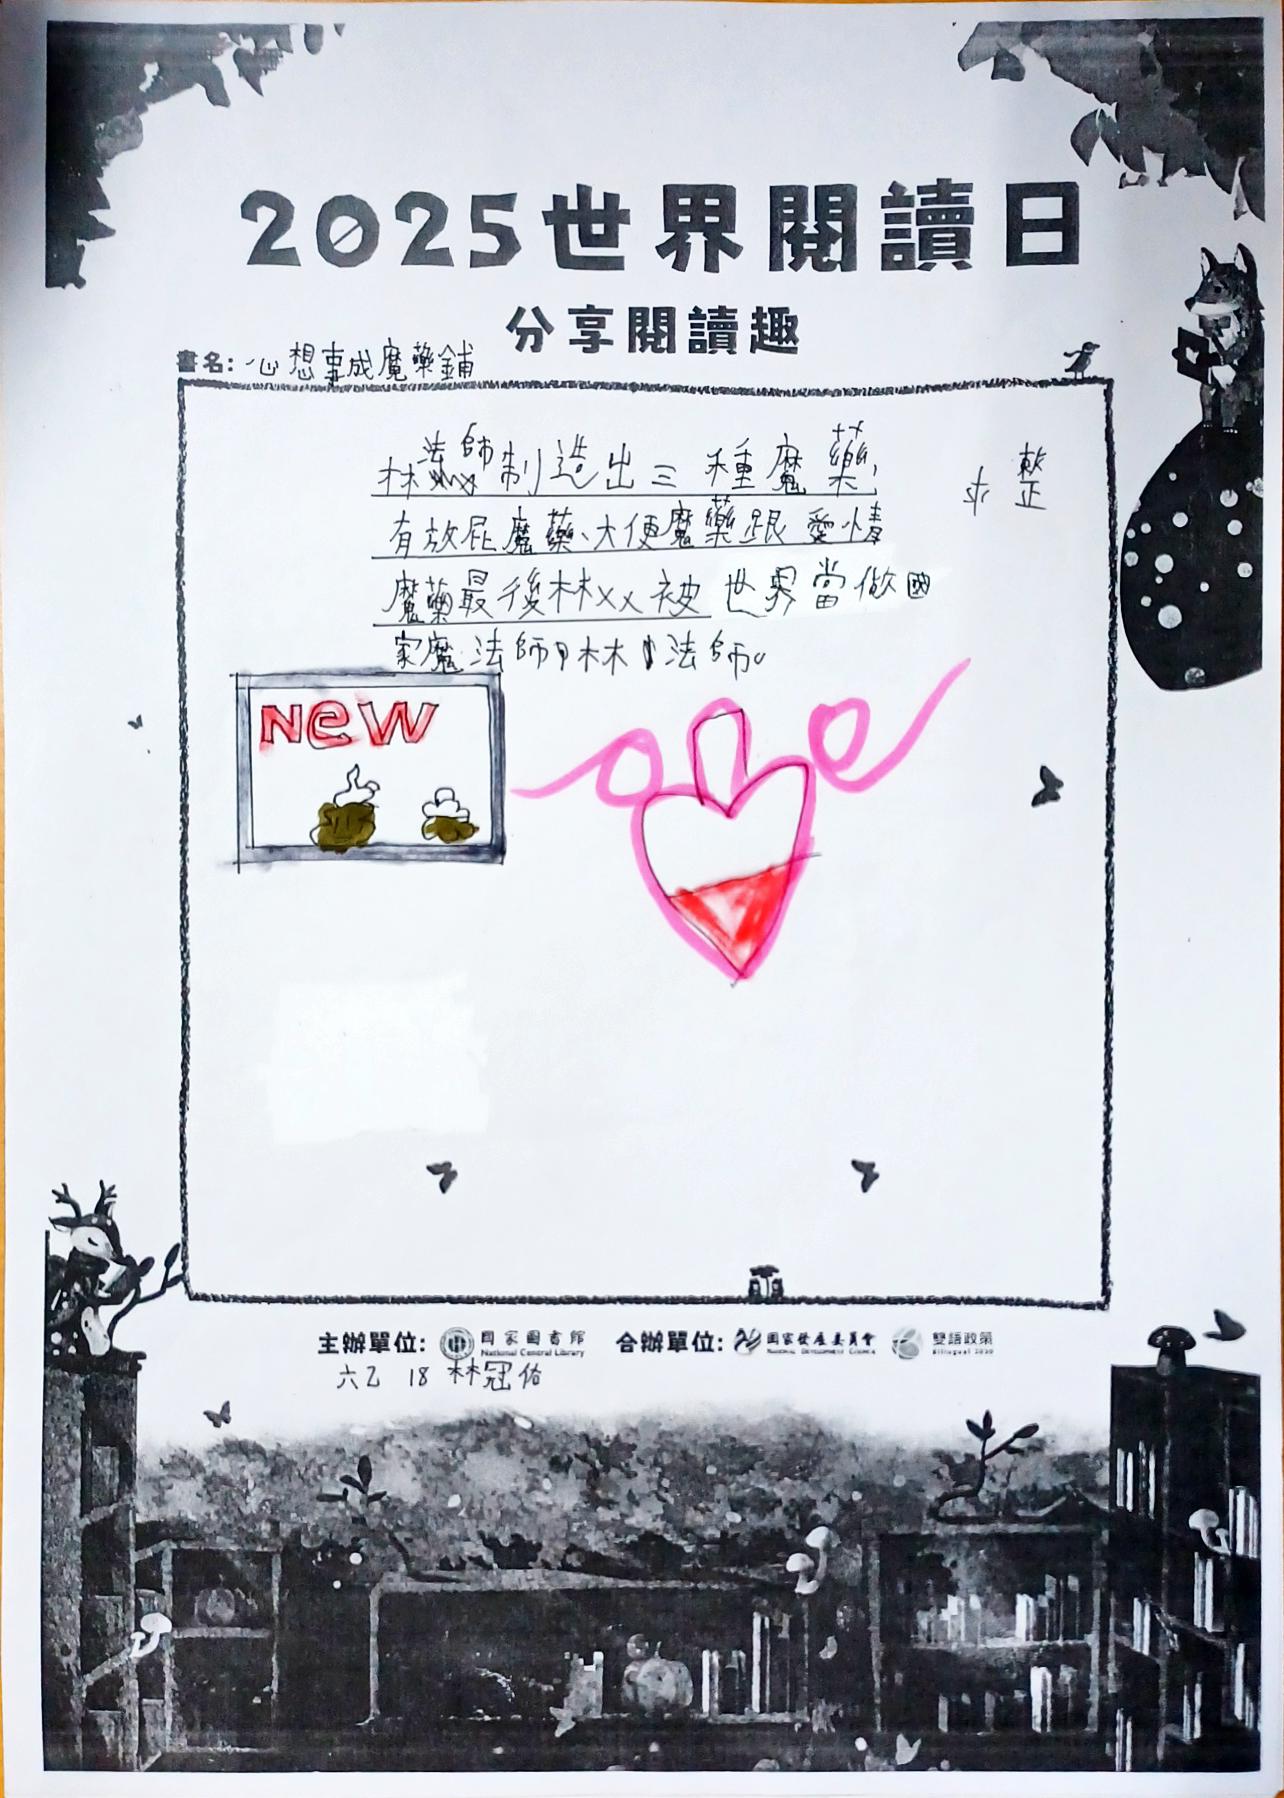 2025世界閱讀日
分享閱讀趣
書名：心想事成魔藥鋪
林法師制造出三種魔藥，
有放屁魔藥、大便魔藥跟愛情
魔藥最後林xx被世界當做國
家魔法師，林法師。
整
NEW
主辦單位：國家圖書館 合辦單位：國家發展委員會 雙語政策
National Central Library NATIONAL DEVELOPMENT COUNCIL Bilingual 2030
六乙 18 林冠佑